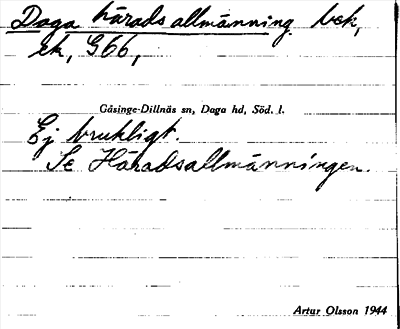 Daga härads allmänning bek,
ek, G66,
Gåsinge-Dillnäs sn, Daga hd, Söd. l.
Ej brukligt.
Se Häradsallmänningen.
Artur Olsson 1944